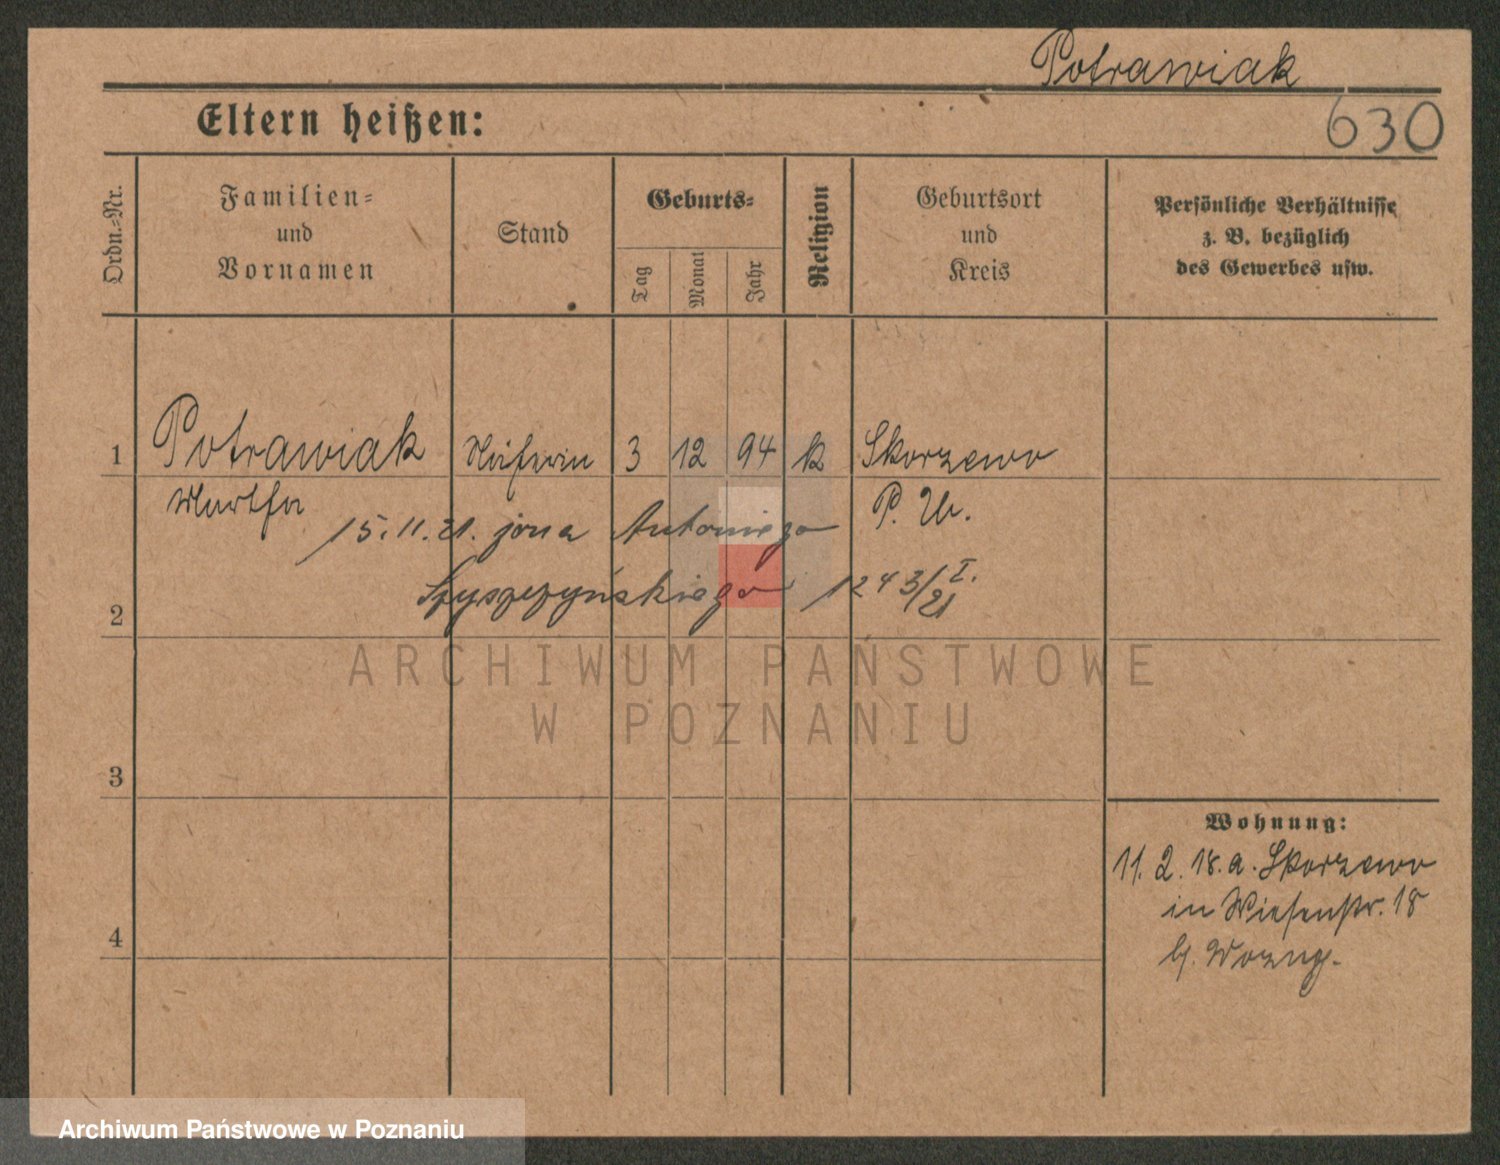 Potrawiak
630
Eltern heißen:
Ordn.-Nr.
Familien-
und
Vornamen
Stand
Geburts-
Tag
Monat
Jahr
Religion
Geburtsort
und
Kreis
Persönliche Verhältnisse
z. B. bezüglich
des Gewerbes usw.
1 Potrawiak Näherin 3 12 94 k Skorzewo
Martha P. W.
15.11.21. żona Antoniego
1243/I.
21
2
ARCHIWUM PAŃSTWOWE
W POZNANIU
3
Wohnung:
11. 2. 18. a. Skorzewo
in Wiesenstr. 18
b. Wozng.
4
Archiwum Państwowe w Poznaniu